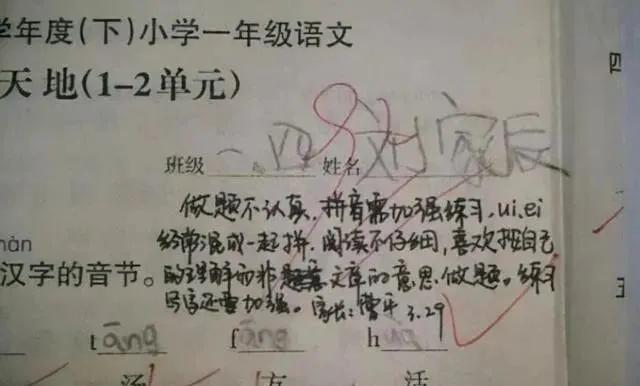 学年度(下)小学一年级语文
天地(1-2单元)
四
班级 一.四 姓名 刘家辰
做题不认真,拼音需加强练习,ui.ei
经常混成一起拼,阅读不仔细,喜欢按自己
的理解而非文章的意思做题。练习
写字还要加强。家长:曹平 3.29
hàn
汉字的音节。
tāng fāng huó
汤 方 活